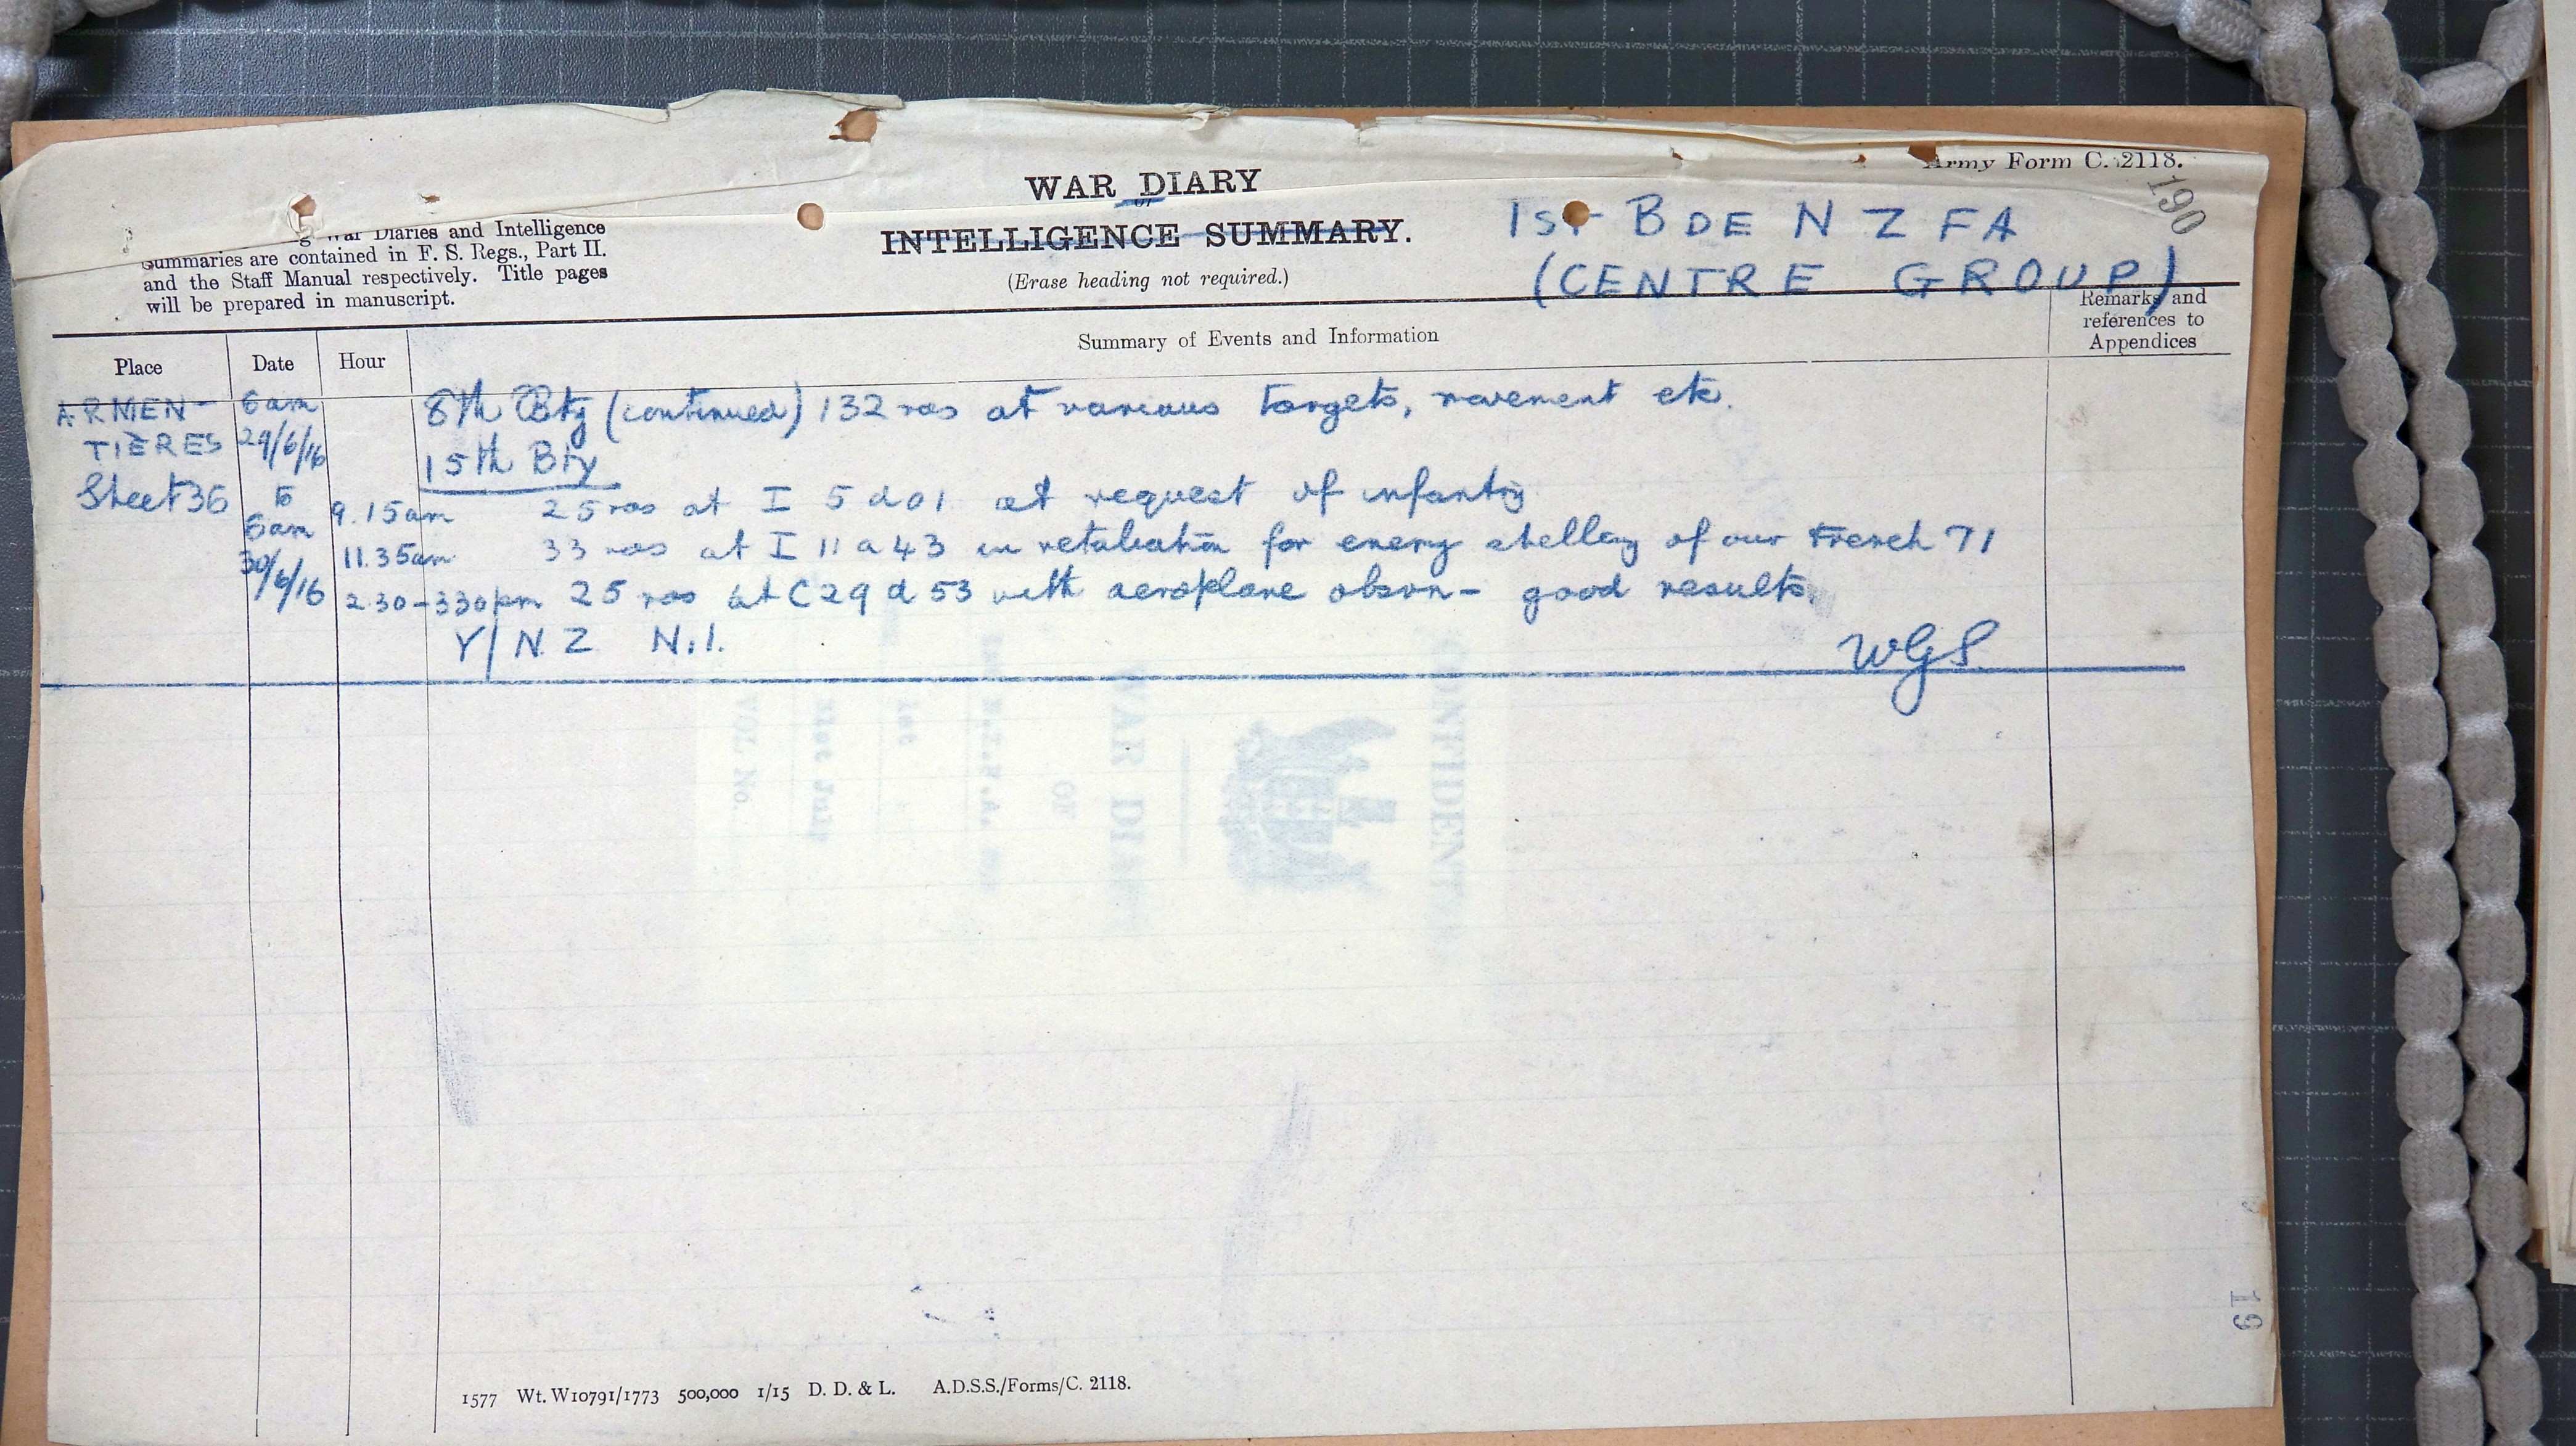 Army Form C. 2118.
190
WAR DIARY
or
INTELLIGENCE SUMMARY.
(Erase heading not required.)
1st BDE N Z F A
(CENTRE GROUP)
War Diaries and Intelligence
Summaries are contained in F. S. Regs., Part II.
and the Staff Manual respectively. Title pages
will be prepared in manuscript.
Place Date Hour Summary of Events and Information Remarks and references to Appendices
ARMEN- 6am 8th Bty (continued) 132 rds at various targets, movement etc.
TIERES 29/6/16 15th Bty
Sheet 36 to 9.15am 25 rds at I 5 d 01 at request of infantry
6am 11.35am 33 rds at I 11 a 43 in retaliation for enemy shelling of our trench 71
30/6/16 2.30-330pm 25 rds at C 29 d 53 with aeroplane obsvn- good results.
Y/N Z Nil. WGS
CONFIDENT
WAR DIARY
OF
VOL No.
19
1577 Wt. W10791/1773 500,000 1/15 D. D. & L. A.D.S.S./Forms/C. 2118.